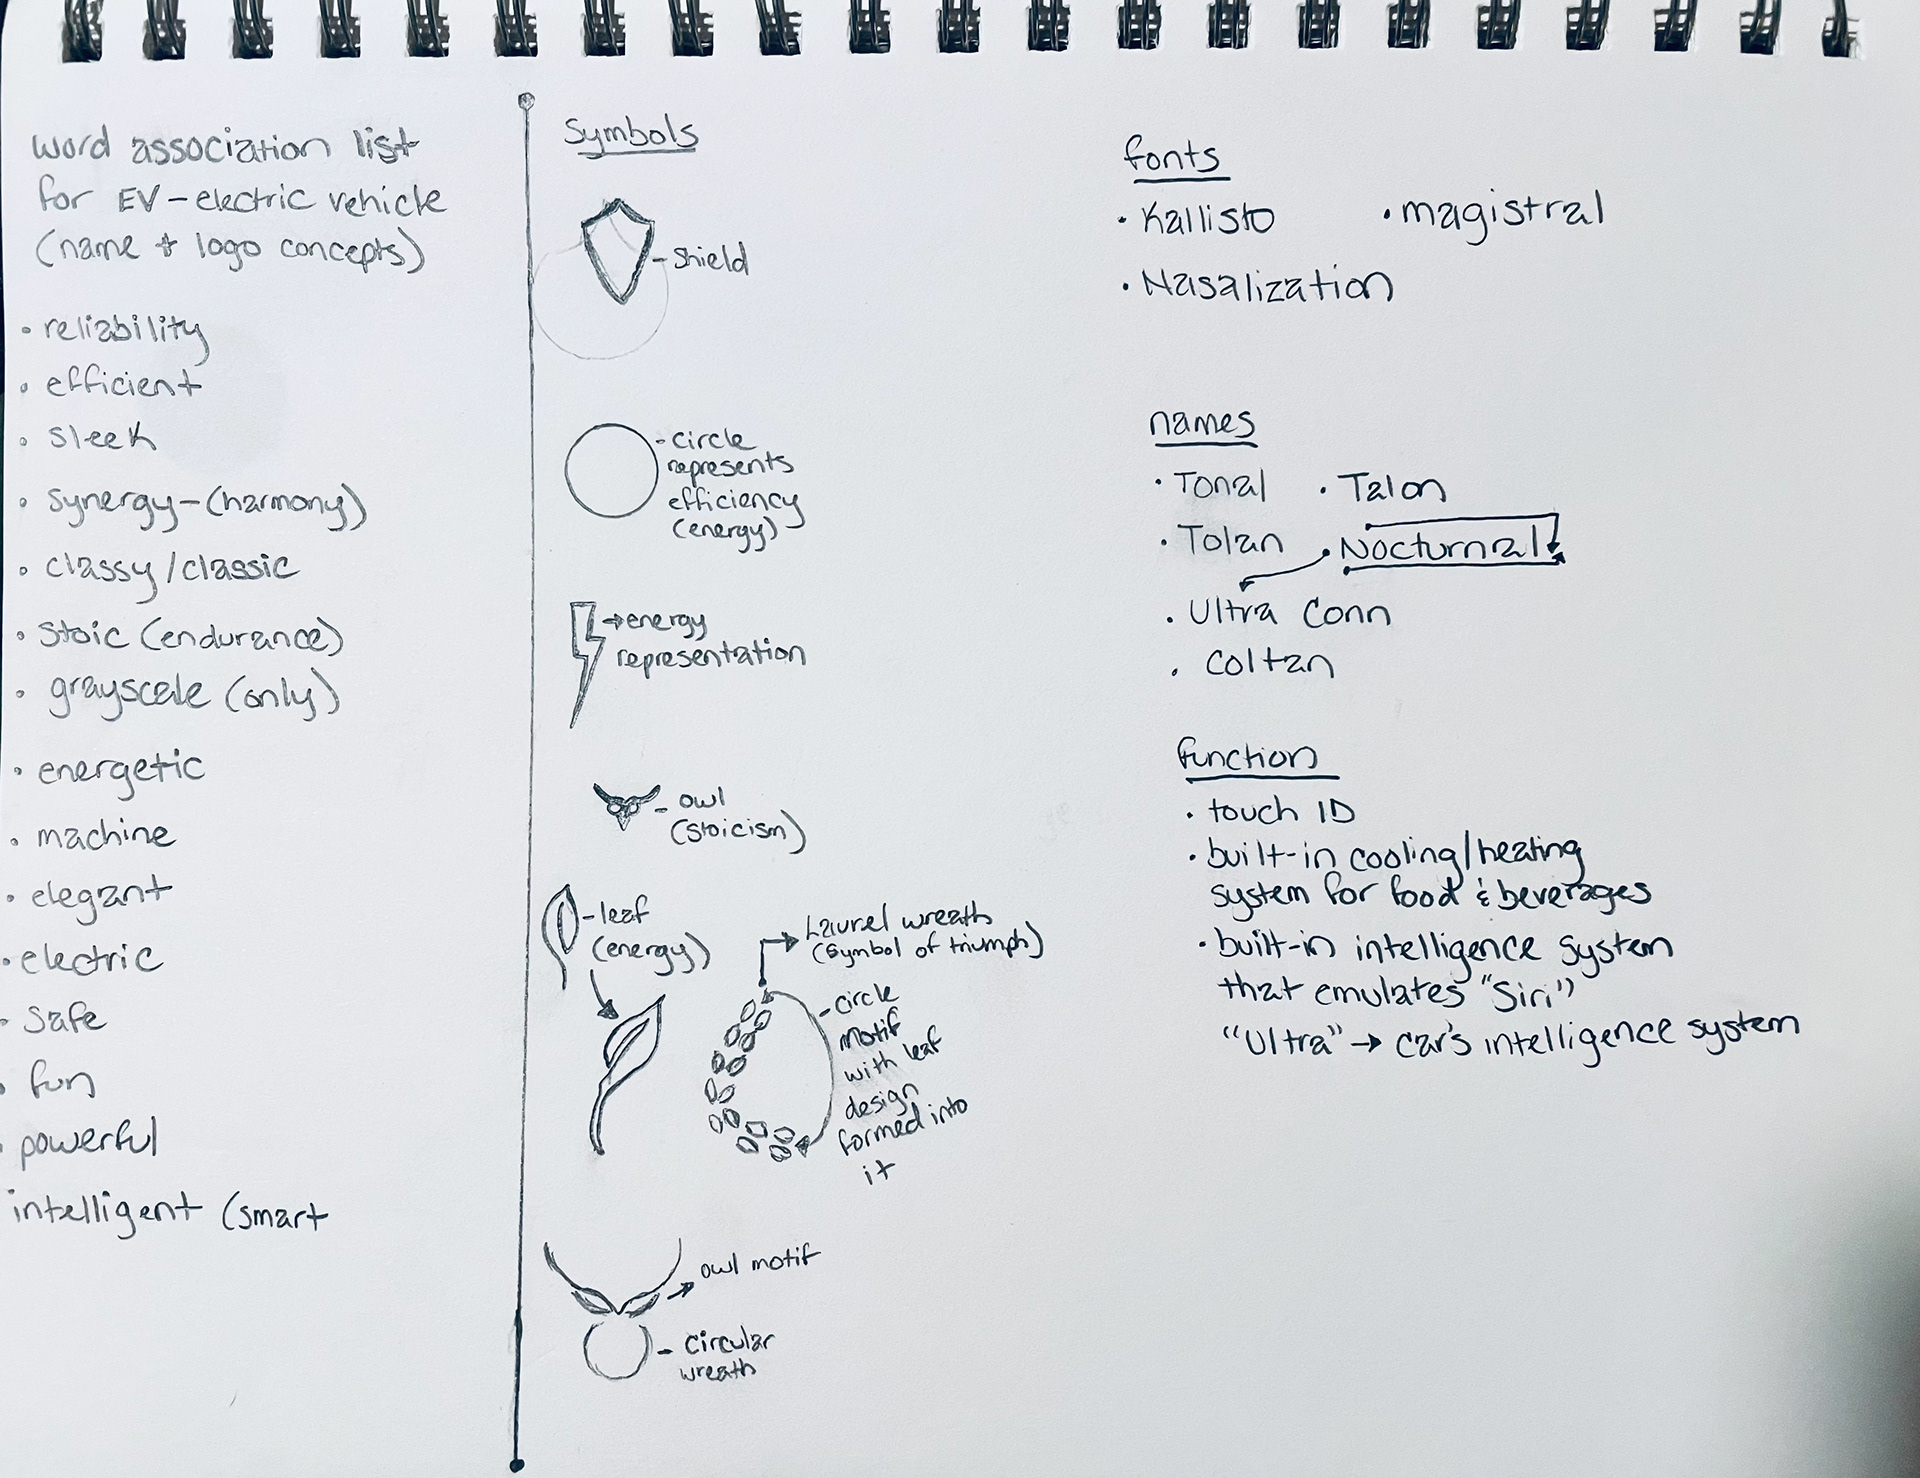 word association list
for EV-electric vehicle
(name + logo concepts)
• reliability
• efficient
• sleek
• synergy-(harmony)
• classy/classic
• stoic (endurance)
• grayscale (only)
• energetic
• machine
• elegant
• electric
• safe
• fun
• powerful
intelligent (smart
Symbols
- shield
- circle
represents
efficiency
(energy)
→ energy
representation
- owl
(stoicism)
- leaf
(energy)
Laurel wreath
(symbol of triumph)
- circle
motif
with leaf
design
formed into
it
owl motif
- circular
wreath
fonts
• Kallisto
• magistral
• Nasalization
names
• Tonal
• Talon
• Tolan
• Nocturnal
• Ultra Conn
• Coltan
function
• touch ID
• built-in cooling/heating
system for food & beverages
• built-in intelligence system
that emulates "Siri"
"Ultra" → car's intelligence system